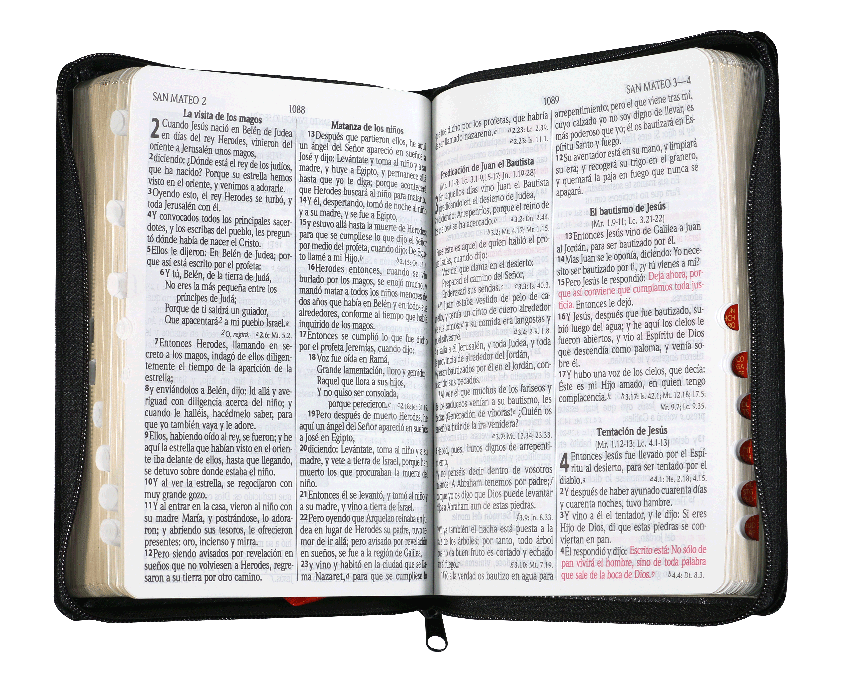 SAN MATEO 2
1088
La visita de los magos
2 Cuando Jesús nació en Belén de Judea
en días del rey Herodes, vinieron del
oriente a Jerusalén unos magos,
2 diciendo: ¿Dónde está el rey de los judíos,
que ha nacido? Porque su estrella hemos
visto en el oriente, y venimos a adorarle.
3 Oyendo esto, el rey Herodes se turbó, y
toda Jerusalén con él.
4 Y convocados todos los principales sacer-
dotes, y los escribas del pueblo, les pregun-
tó dónde había de nacer el Cristo.
5 Ellos le dijeron: En Belén de Judea; por-
que así está escrito por el profeta:
6 Y tú, Belén, de la tierra de Judá,
No eres la más pequeña entre los
príncipes de Judá;
Porque de ti saldrá un guiador,
Que apacentará a mi pueblo Israel.
7 Entonces Herodes, llamando en se-
creto a los magos, indagó de ellos diligen-
temente el tiempo de la aparición de la
estrella;
8 y enviándolos a Belén, dijo: Id allá y ave-
riguad con diligencia acerca del niño; y
cuando le halléis, hacédmelo saber, para
que yo también vaya y le adore.
9 Ellos, habiendo oído al rey, se fueron; y he
aquí la estrella que habían visto en el orien-
te iba delante de ellos, hasta que llegando,
se detuvo sobre donde estaba el niño.
10 Y al ver la estrella, se regocijaron con
muy grande gozo.
11 Y al entrar en la casa, vieron al niño con
su madre María, y postrándose, lo adora-
ron; y abriendo sus tesoros, le ofrecieron
presentes: oro, incienso y mirra.
12 Pero siendo avisados por revelación en
sueños que no volviesen a Herodes, regre-
saron a su tierra por otro camino.
Matanza de los niños
13 Después que partieron ellos, he aquí
un ángel del Señor apareció en sueños a
José y dijo: Levántate y toma al niño y a su
madre, y huye a Egipto, y permanece allá
hasta que yo te diga; porque acontecerá
que Herodes buscará al niño para matarlo.
14 Y él, despertando, tomó de noche al niño
y a su madre, y se fue a Egipto,
15 y estuvo allá hasta la muerte de Herodes;
para que se cumpliese lo que dijo el Señor
por medio del profeta, cuando dijo: De Egip-
to llamé a mi Hijo.
16 Herodes entonces, cuando se vio
burlado por los magos, se enojó mucho, y
mandó matar a todos los niños menores de
dos años que había en Belén y en todos sus
alrededores, conforme al tiempo que había
inquirido de los magos.
17 Entonces se cumplió lo que fue dicho
por el profeta Jeremías, cuando dijo:
18 Voz fue oída en Ramá,
Grande lamentación, lloro y gemido;
Raquel que llora a sus hijos,
Y no quiso ser consolada,
porque perecieron.
19 Pero después de muerto Herodes, he
aquí un ángel del Señor apareció en sueños
a José en Egipto,
20 diciendo: Levántate, toma al niño y a su
madre, y vete a tierra de Israel, porque han
muerto los que procuraban la muerte del
niño.
21 Entonces él se levantó, y tomó al niño y
a su madre, y vino a tierra de Israel.
22 Pero oyendo que Arquelao reinaba en Ju-
dea en lugar de Herodes su padre, tuvo te-
mor de ir allá; pero avisado por revelación
en sueños, se fue a la región de Galilea,
23 y vino y habitó en la ciudad que se lla-
ma Nazaret, para que se cumpliese lo
1089
SAN MATEO 3—4
dicho por los profetas, que habría
de ser llamado nazareno.
Predicación de Juan el Bautista
(Mr. 1.1-8; Lc. 3.1-9,15-17; Jn. 1.19-28)
aquellos días vino Juan el Bautista
predicando en el desierto de Judea,
diciendo: Arrepentíos, porque el reino de
los cielos se ha acercado.
este es aquel de quien habló el pro-
feta Isaías, cuando dijo:
Voz del que clama en el desierto:
Preparad el camino del Señor,
Enderezad sus sendas.
Juan estaba vestido de pelo de ca-
mello, y tenía un cinto de cuero alrededor
de sus lomos; y su comida era langostas y
miel silvestre.
salía a él Jerusalén, y toda Judea, y toda
la provincia de alrededor del Jordán,
y eran bautizados por él en el Jordán, con-
fesando sus pecados.
Al ver él que muchos de los fariseos y
de los saduceos venían a su bautismo, les
decía: ¡Generación de víboras! ¿Quién os
enseñó a huir de la ira venidera?
Haced, pues, frutos dignos de arrepenti-
miento,
y no penséis decir dentro de vosotros
mismos: A Abraham tenemos por padre;
porque yo os digo que Dios puede levantar
hijos a Abraham aun de estas piedras.
Y también el hacha está puesta a la
raíz de los árboles; por tanto, todo árbol
que no da buen fruto es cortado y echado
en el fuego.
Yo a la verdad os bautizo en agua para
arrepentimiento; pero el que viene tras mí,
cuyo calzado yo no soy digno de llevar, es
más poderoso que yo; él os bautizará en Es-
píritu Santo y fuego.
12 Su aventador está en su mano, y limpiará
su era; y recogerá su trigo en el granero,
y quemará la paja en fuego que nunca se
apagará.
El bautismo de Jesús
(Mr. 1.9-11; Lc. 3.21-22)
13 Entonces Jesús vino de Galilea a Juan
al Jordán, para ser bautizado por él.
14 Mas Juan se le oponía, diciendo: Yo nece-
sito ser bautizado por ti, ¿y tú vienes a mí?
15 Pero Jesús le respondió: Deja ahora, por-
que así conviene que cumplamos toda jus-
ticia. Entonces le dejó.
16 Y Jesús, después que fue bautizado, su-
bió luego del agua; y he aquí los cielos le
fueron abiertos, y vio al Espíritu de Dios
que descendía como paloma, y venía so-
bre él.
17 Y hubo una voz de los cielos, que decía:
Éste es mi Hijo amado, en quien tengo
complacencia.
Tentación de Jesús
(Mr. 1.12-13; Lc. 4.1-13)
4 Entonces Jesús fue llevado por el Espí-
ritu al desierto, para ser tentado por el
diablo.
2 Y después de haber ayunado cuarenta días
y cuarenta noches, tuvo hambre.
3 Y vino a él el tentador, y le dijo: Si eres
Hijo de Dios, di que estas piedras se con-
viertan en pan.
4 Él respondió y dijo: Escrito está: No sólo de
pan vivirá el hombre, sino de toda palabra
que sale de la boca de Dios.